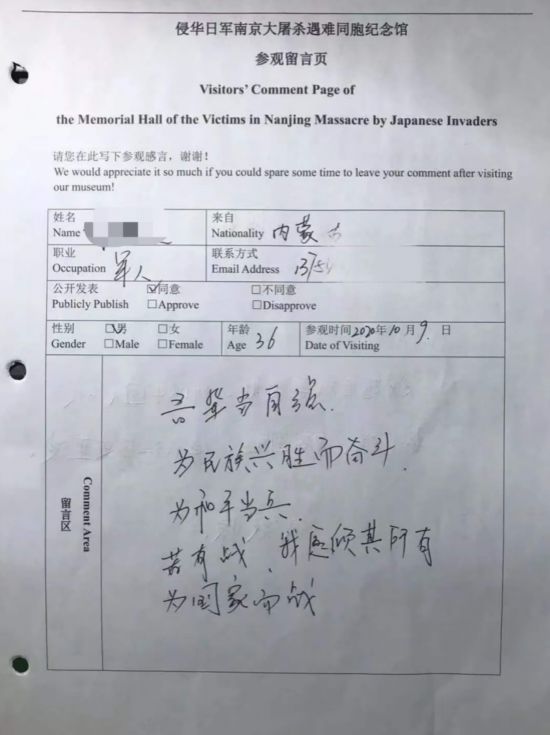 侵华日军南京大屠杀遇难同胞纪念馆
参观留言页
Visitors' Comment Page of
the Memorial Hall of the Victims in Nanjing Massacre by Japanese Invaders
请您在此写下参观感言，谢谢！
We would appreciate it so much if you could spare some time to leave your comment after visiting
our museum!
姓名
Name
来自
Nationality 内蒙古
职业
Occupation 军人
联系方式
Email Address
公开发表
Publicly Publish
☑同意
☐Approve
☐不同意
☐Disapprove
性别
Gender
☑男
☐Male
☐女
☐Female
年龄
Age 36
参观时间2020年10月9日
Date of Visiting
留言区
Comment Area
吾辈当自强.
为民族兴胜而奋斗.
为和平当兵.
若有战、我愿倾其所有
为国家而战